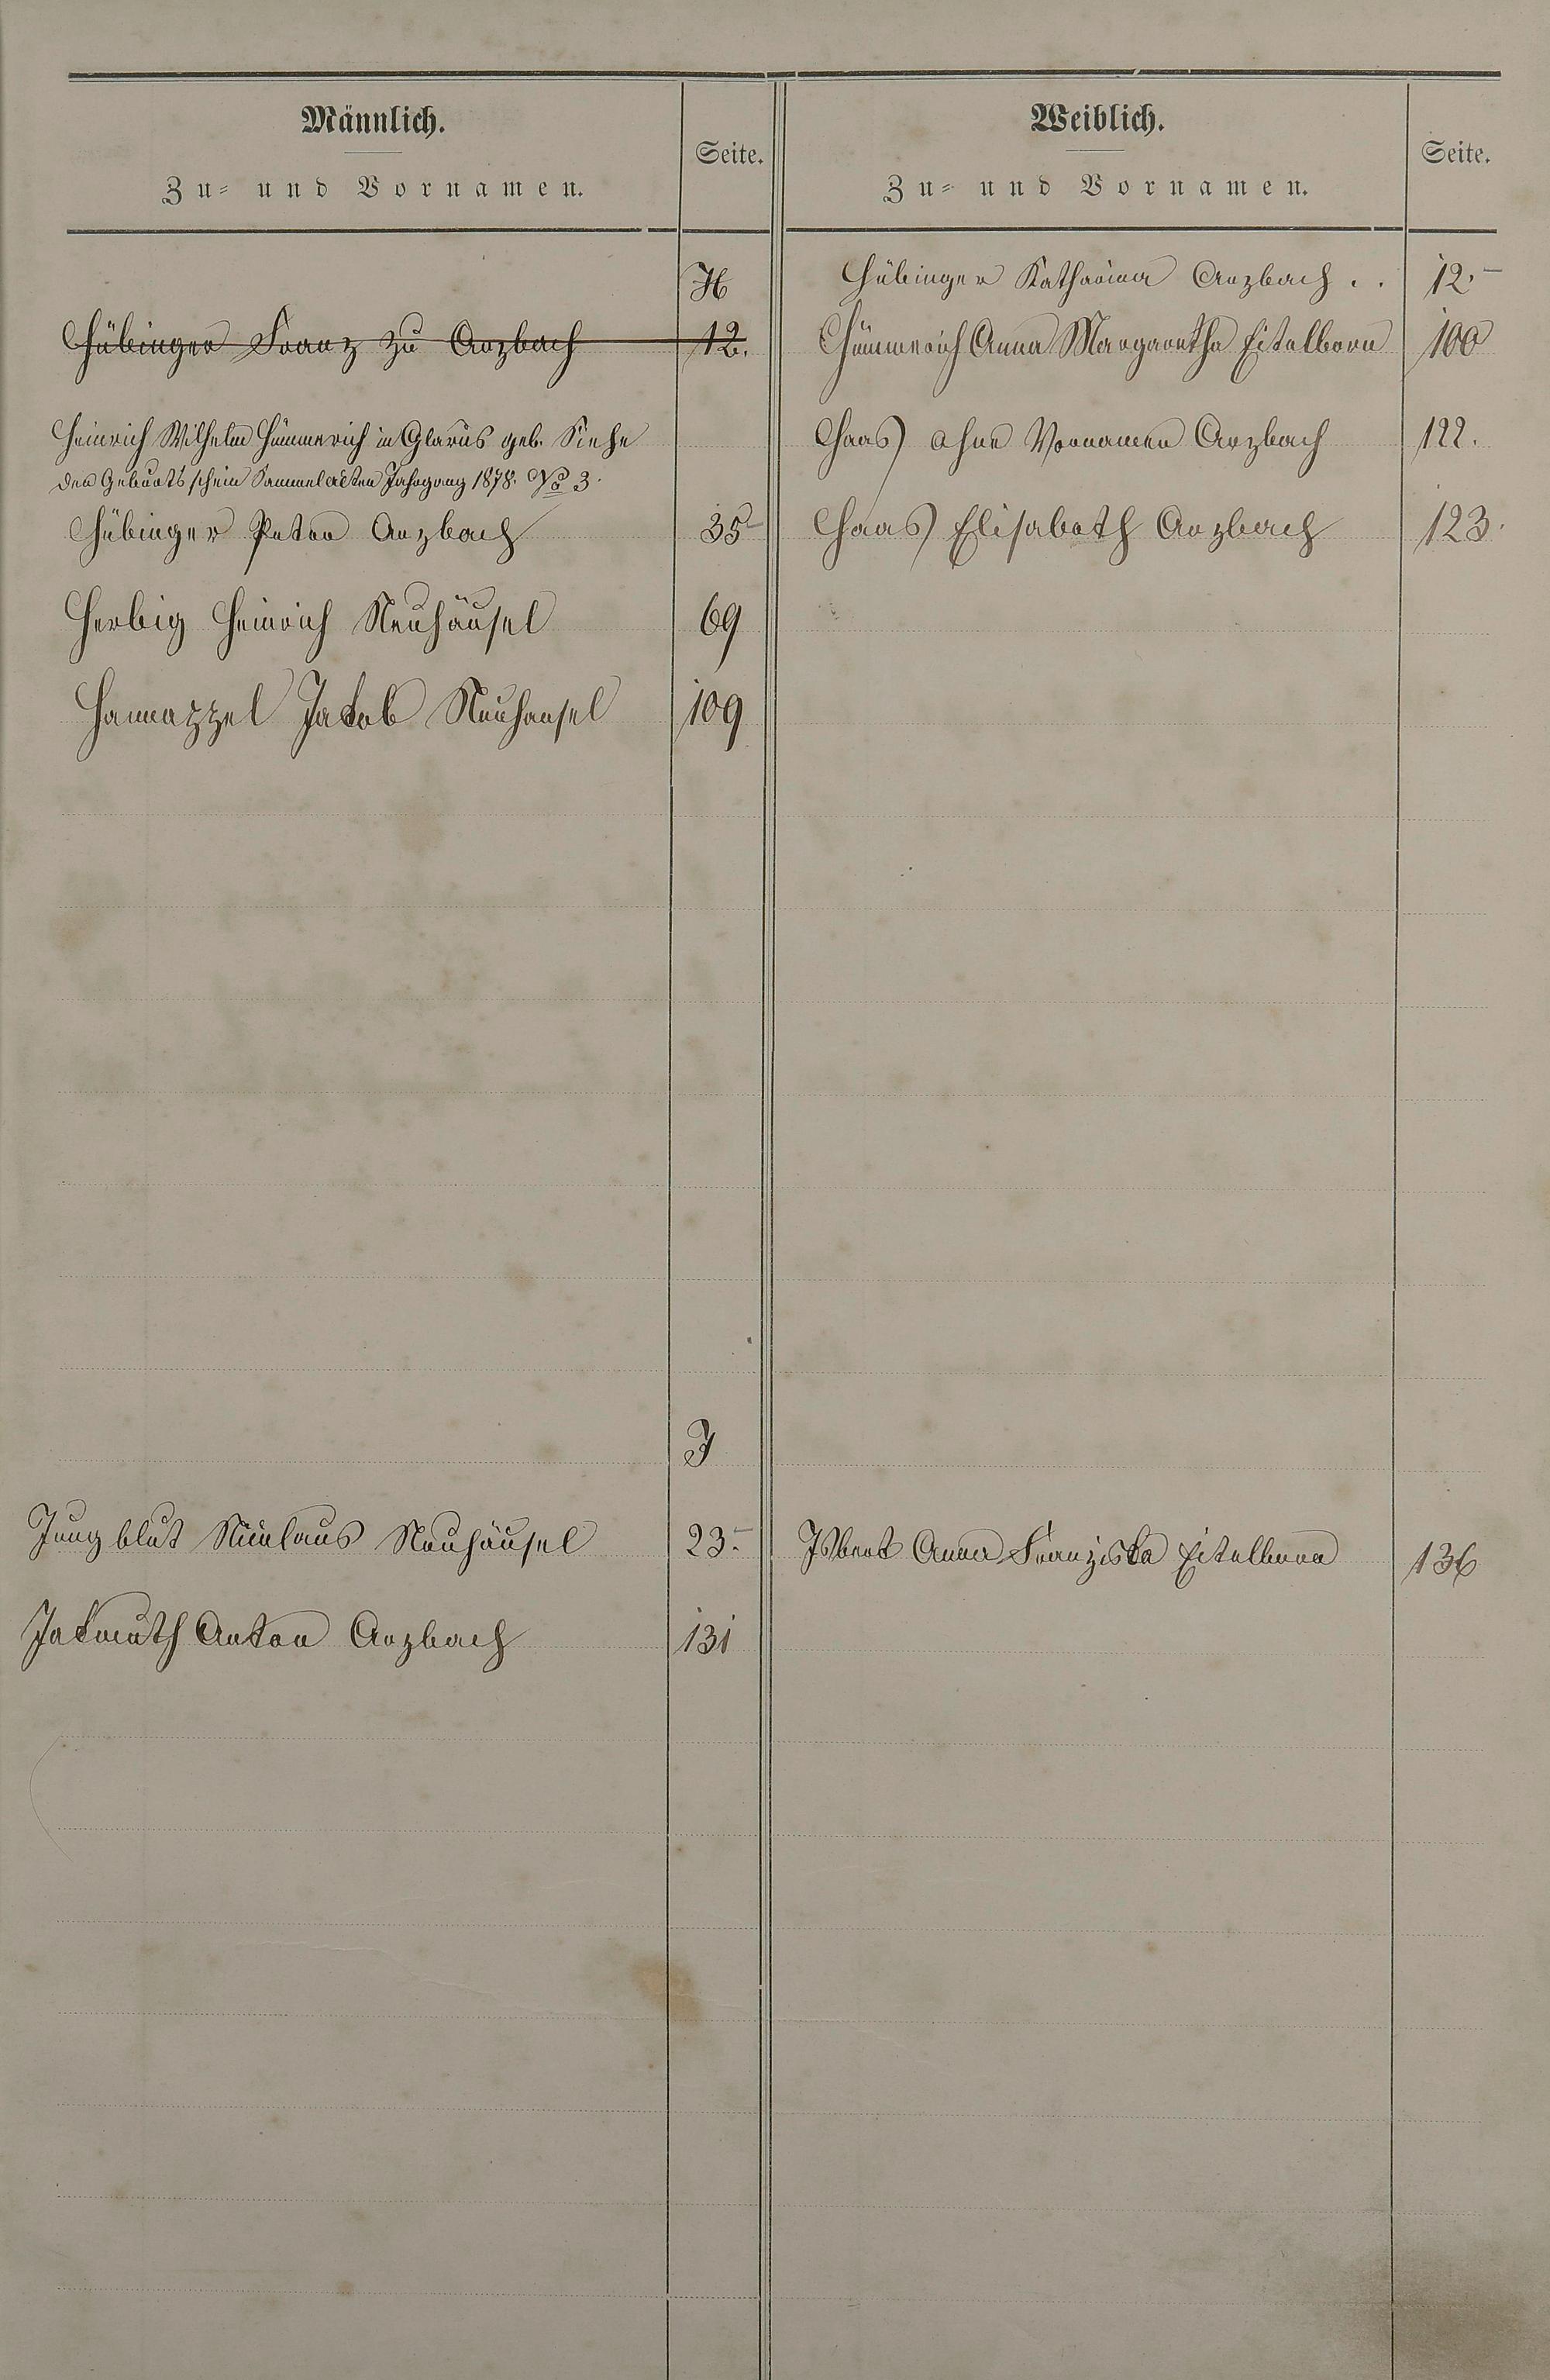 Männlich.
Zu- und Vornamen.
Seite.
H
Hübinger Franz zu Arzbach 12.
Heinrich Wilhelm Hümmerich in Glarus geb. Siehe
den Geburtsschein Sammelakten Jahrgang 1878. No 3.
Hübinger Peter Arzbach 35
Herbig Heinrich Neuhäusel 69
Hannappel Jakob Neuhäusel 109
J
Jungblut Nicolaus Neuhäusel 23.
Anton Arzbach 131
Weiblich.
Zu- und Vornamen.
Seite.
Hübinger Katharina Arzbach . . 12.
Hümmerich Anna Margaretha Eitelborn 100
Haas ohne Vornamen Arzbach 122.
Haas Elisabeth Arzbach 123.
Isbert Anna Franziska Eitelborn 136